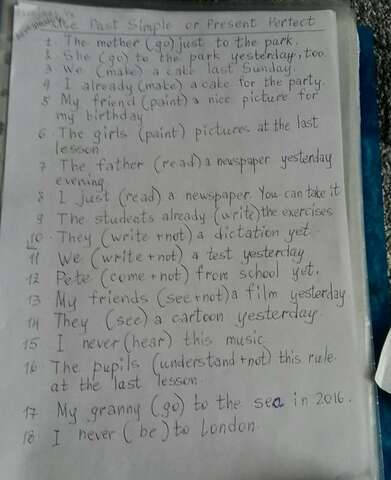 The Past Simple or Present Perfect
1. The mother (go) just to the park.
2. She (go) to the park yesterday, too.
3 We (make) a cake last Sunday.
4 I already (make) a cake for the party.
5 My friend (paint) a nice picture for
my birthday
6. The girls (paint) pictures at the last
lesson
7 The father (read) a newspaper yesterday
evening.
8 I just (read) a newspaper. You can take it
9 The students already (write) the exercises
10. They (write + not) a dictation yet.
11 We (write + not) a test yesterday
12 Pete (come + not) from school yet.
13 My friends (see + not) a film yesterday
14 They (see) a cartoon yesterday.
15 I never (hear) this music
16. The pupils (understand + not) this rule
at the last lesson.
17 My granny (go) to the sea in 2016.
18 I never (be) to London.